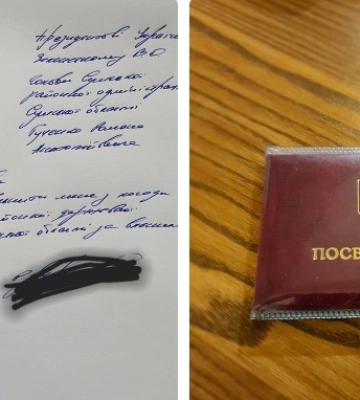 Президентові Украї
Зеленському В.О.
Голови Сумської
районної адміністра
Сумської області
Гученка Романа
Анатолійовича
мене з посади
районної державної
області за власним
ПОСВ